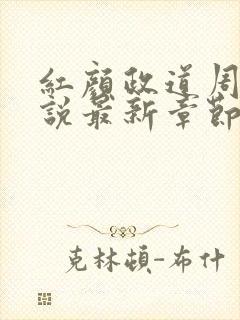 紅顏政道周
說最新章節
克林頓-布什